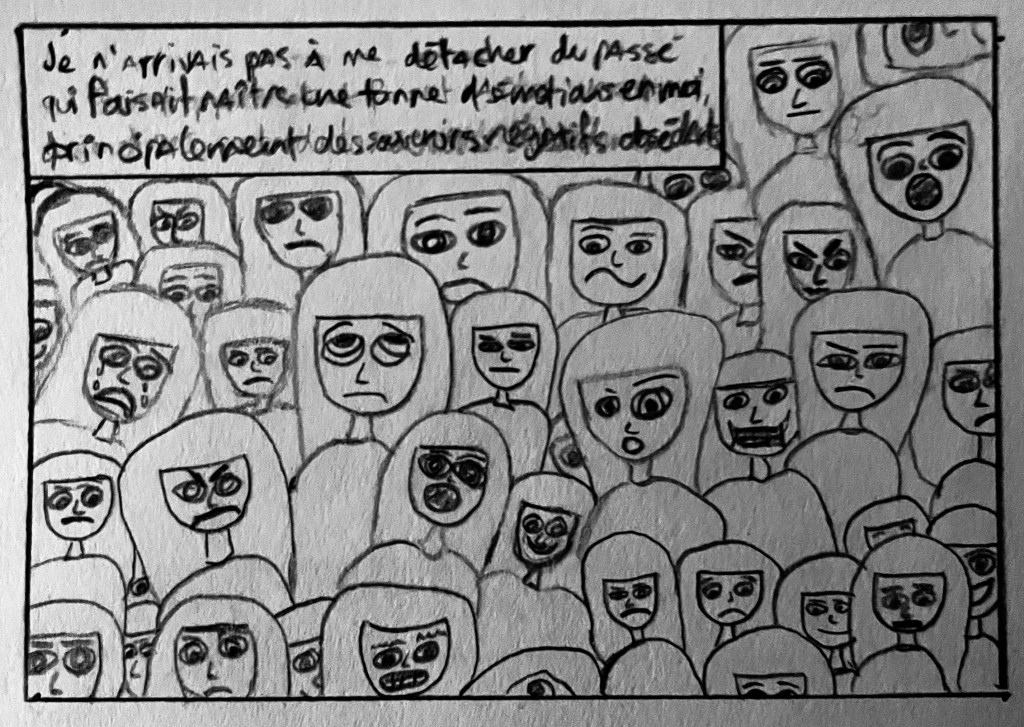 Je n'arrivais pas à me détacher du passé
qui faisait naître une tonne d'émotions en moi,
principalement des souvenirs négatifs obsédants